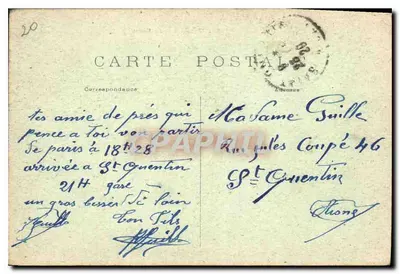 20
CARTE POSTALE
Correspondance
tes amie de près qui
pence a toi von partir
de paris à 18H28
arrivée a St Quentin
21H gare
un gros besser de loin
ton fils
Madame Guille
Rue jules Coupé 46
St Quentin
Aisne